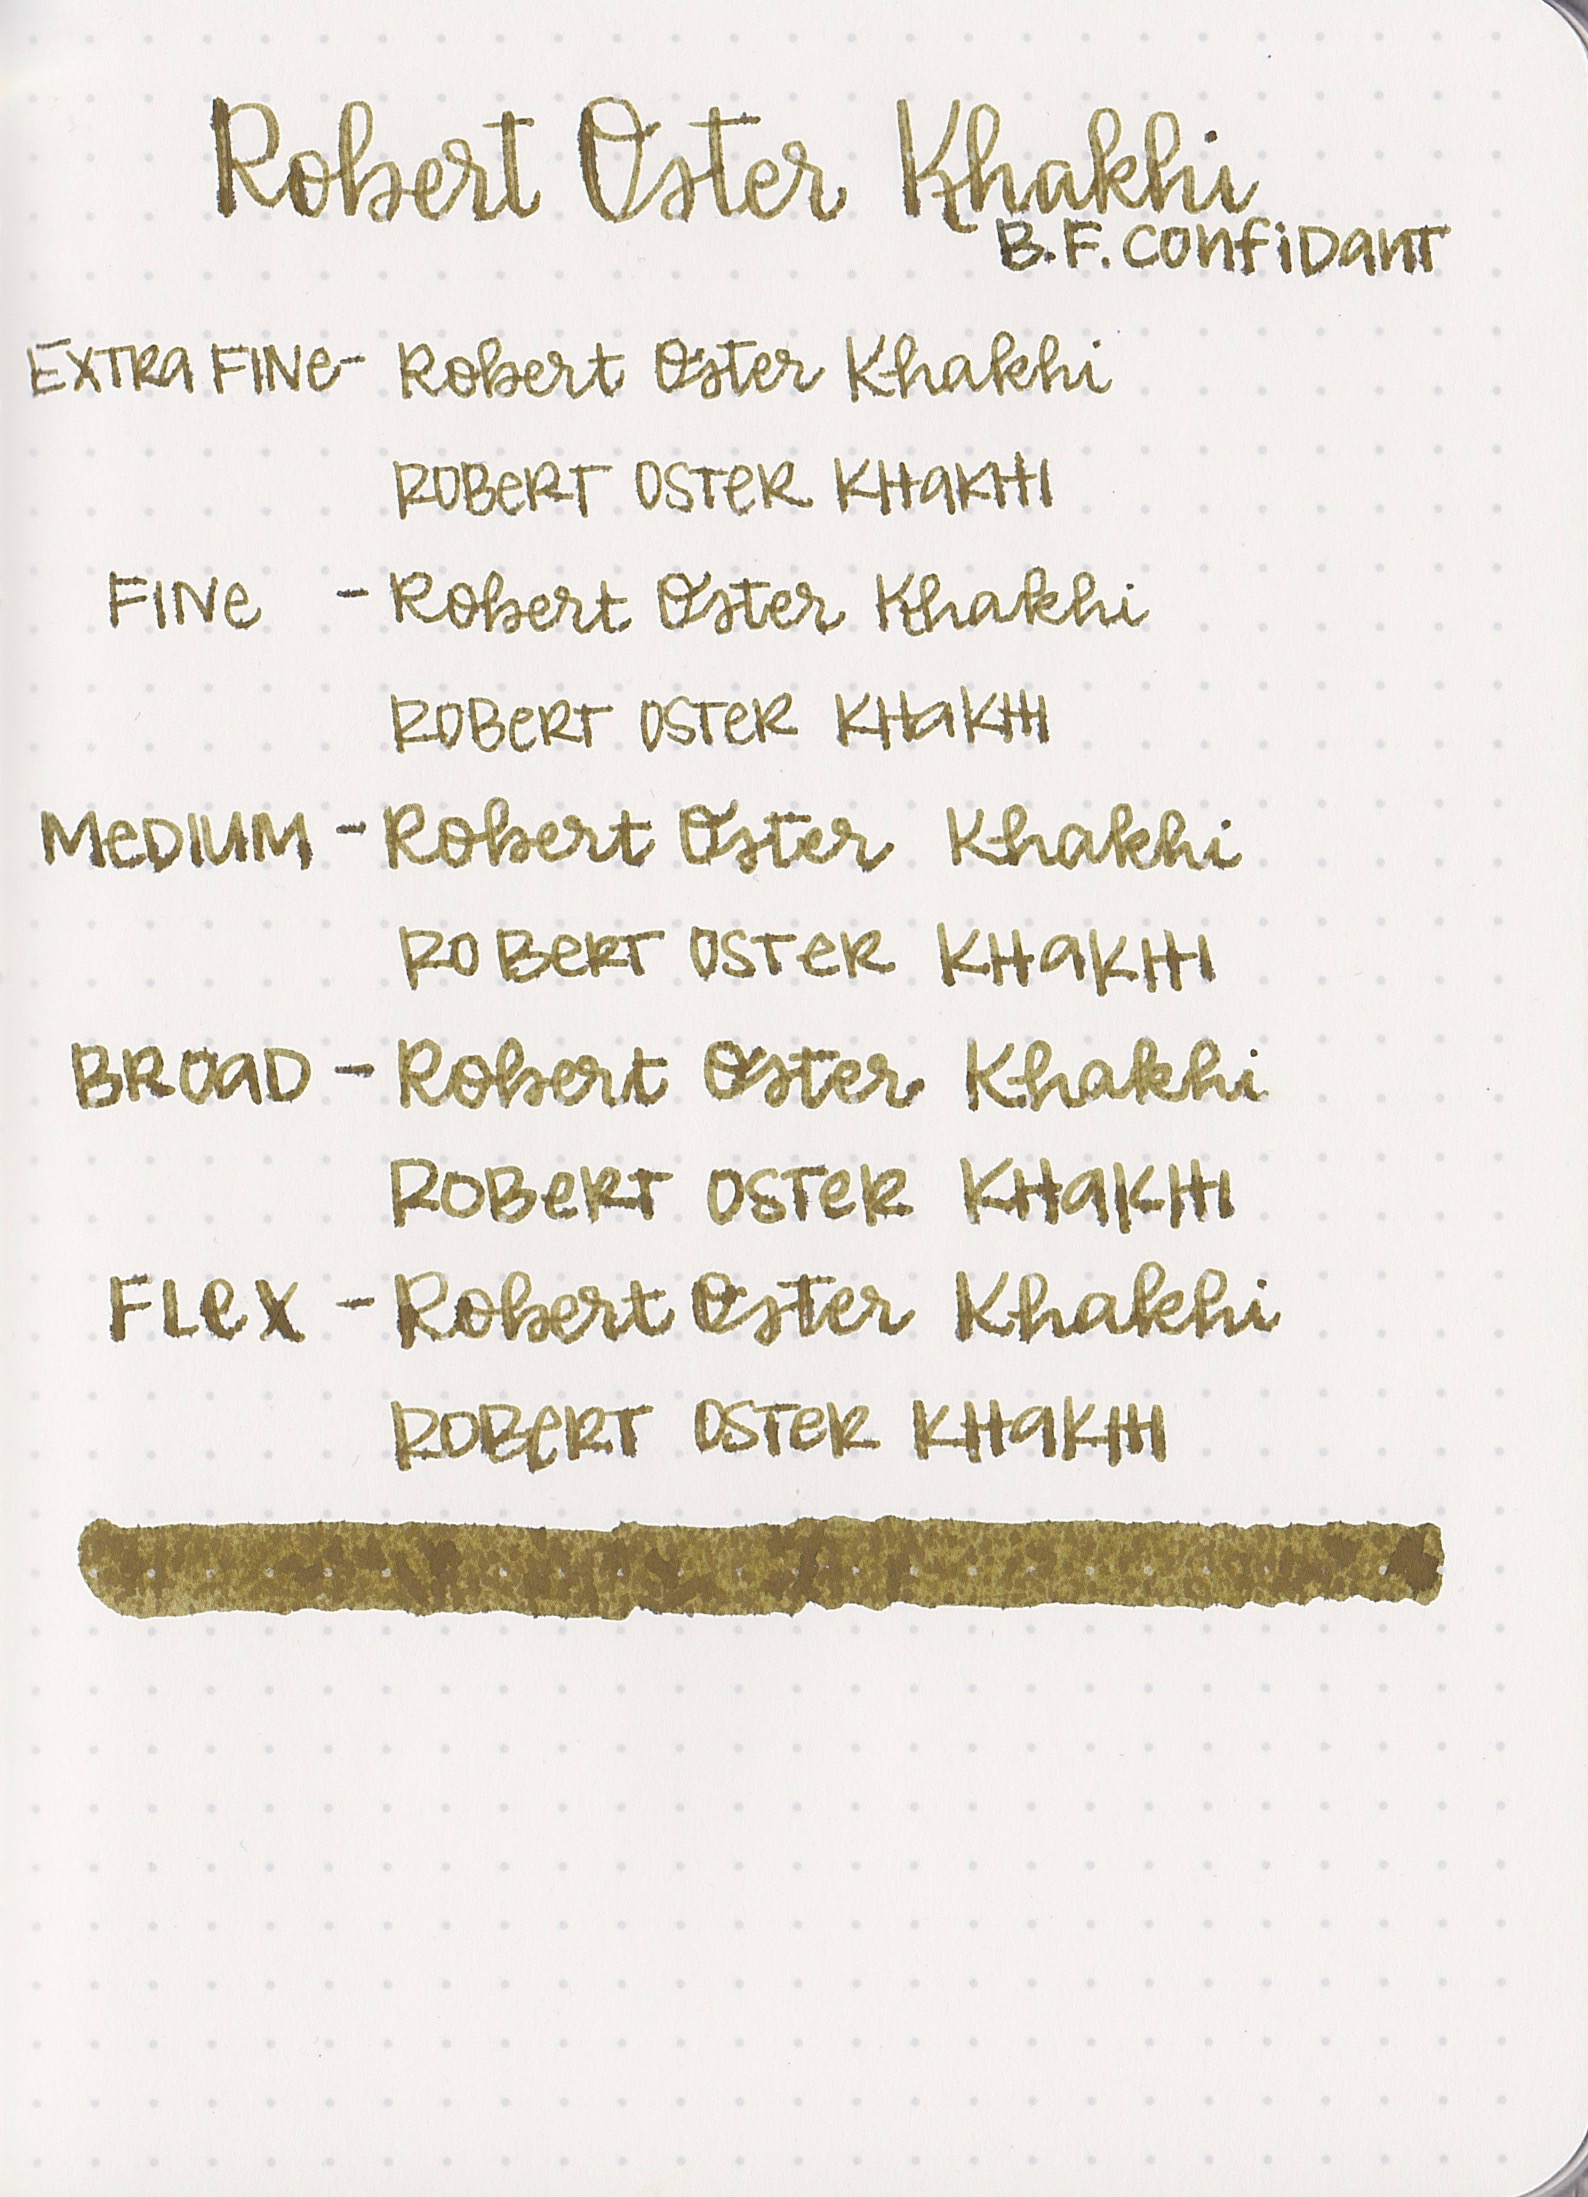 Robert Oster Khakhi
B.F. Confidant
Extra Fine - Robert Oster Khakhi
Robert Oster Khakhi
Fine - Robert Oster Khakhi
Robert Oster Khakhi
Medium - Robert Oster Khakhi
Robert Oster Khakhi
Broad - Robert Oster Khakhi
Robert Oster Khakhi
Flex - Robert Oster Khakhi
Robert Oster Khakhi